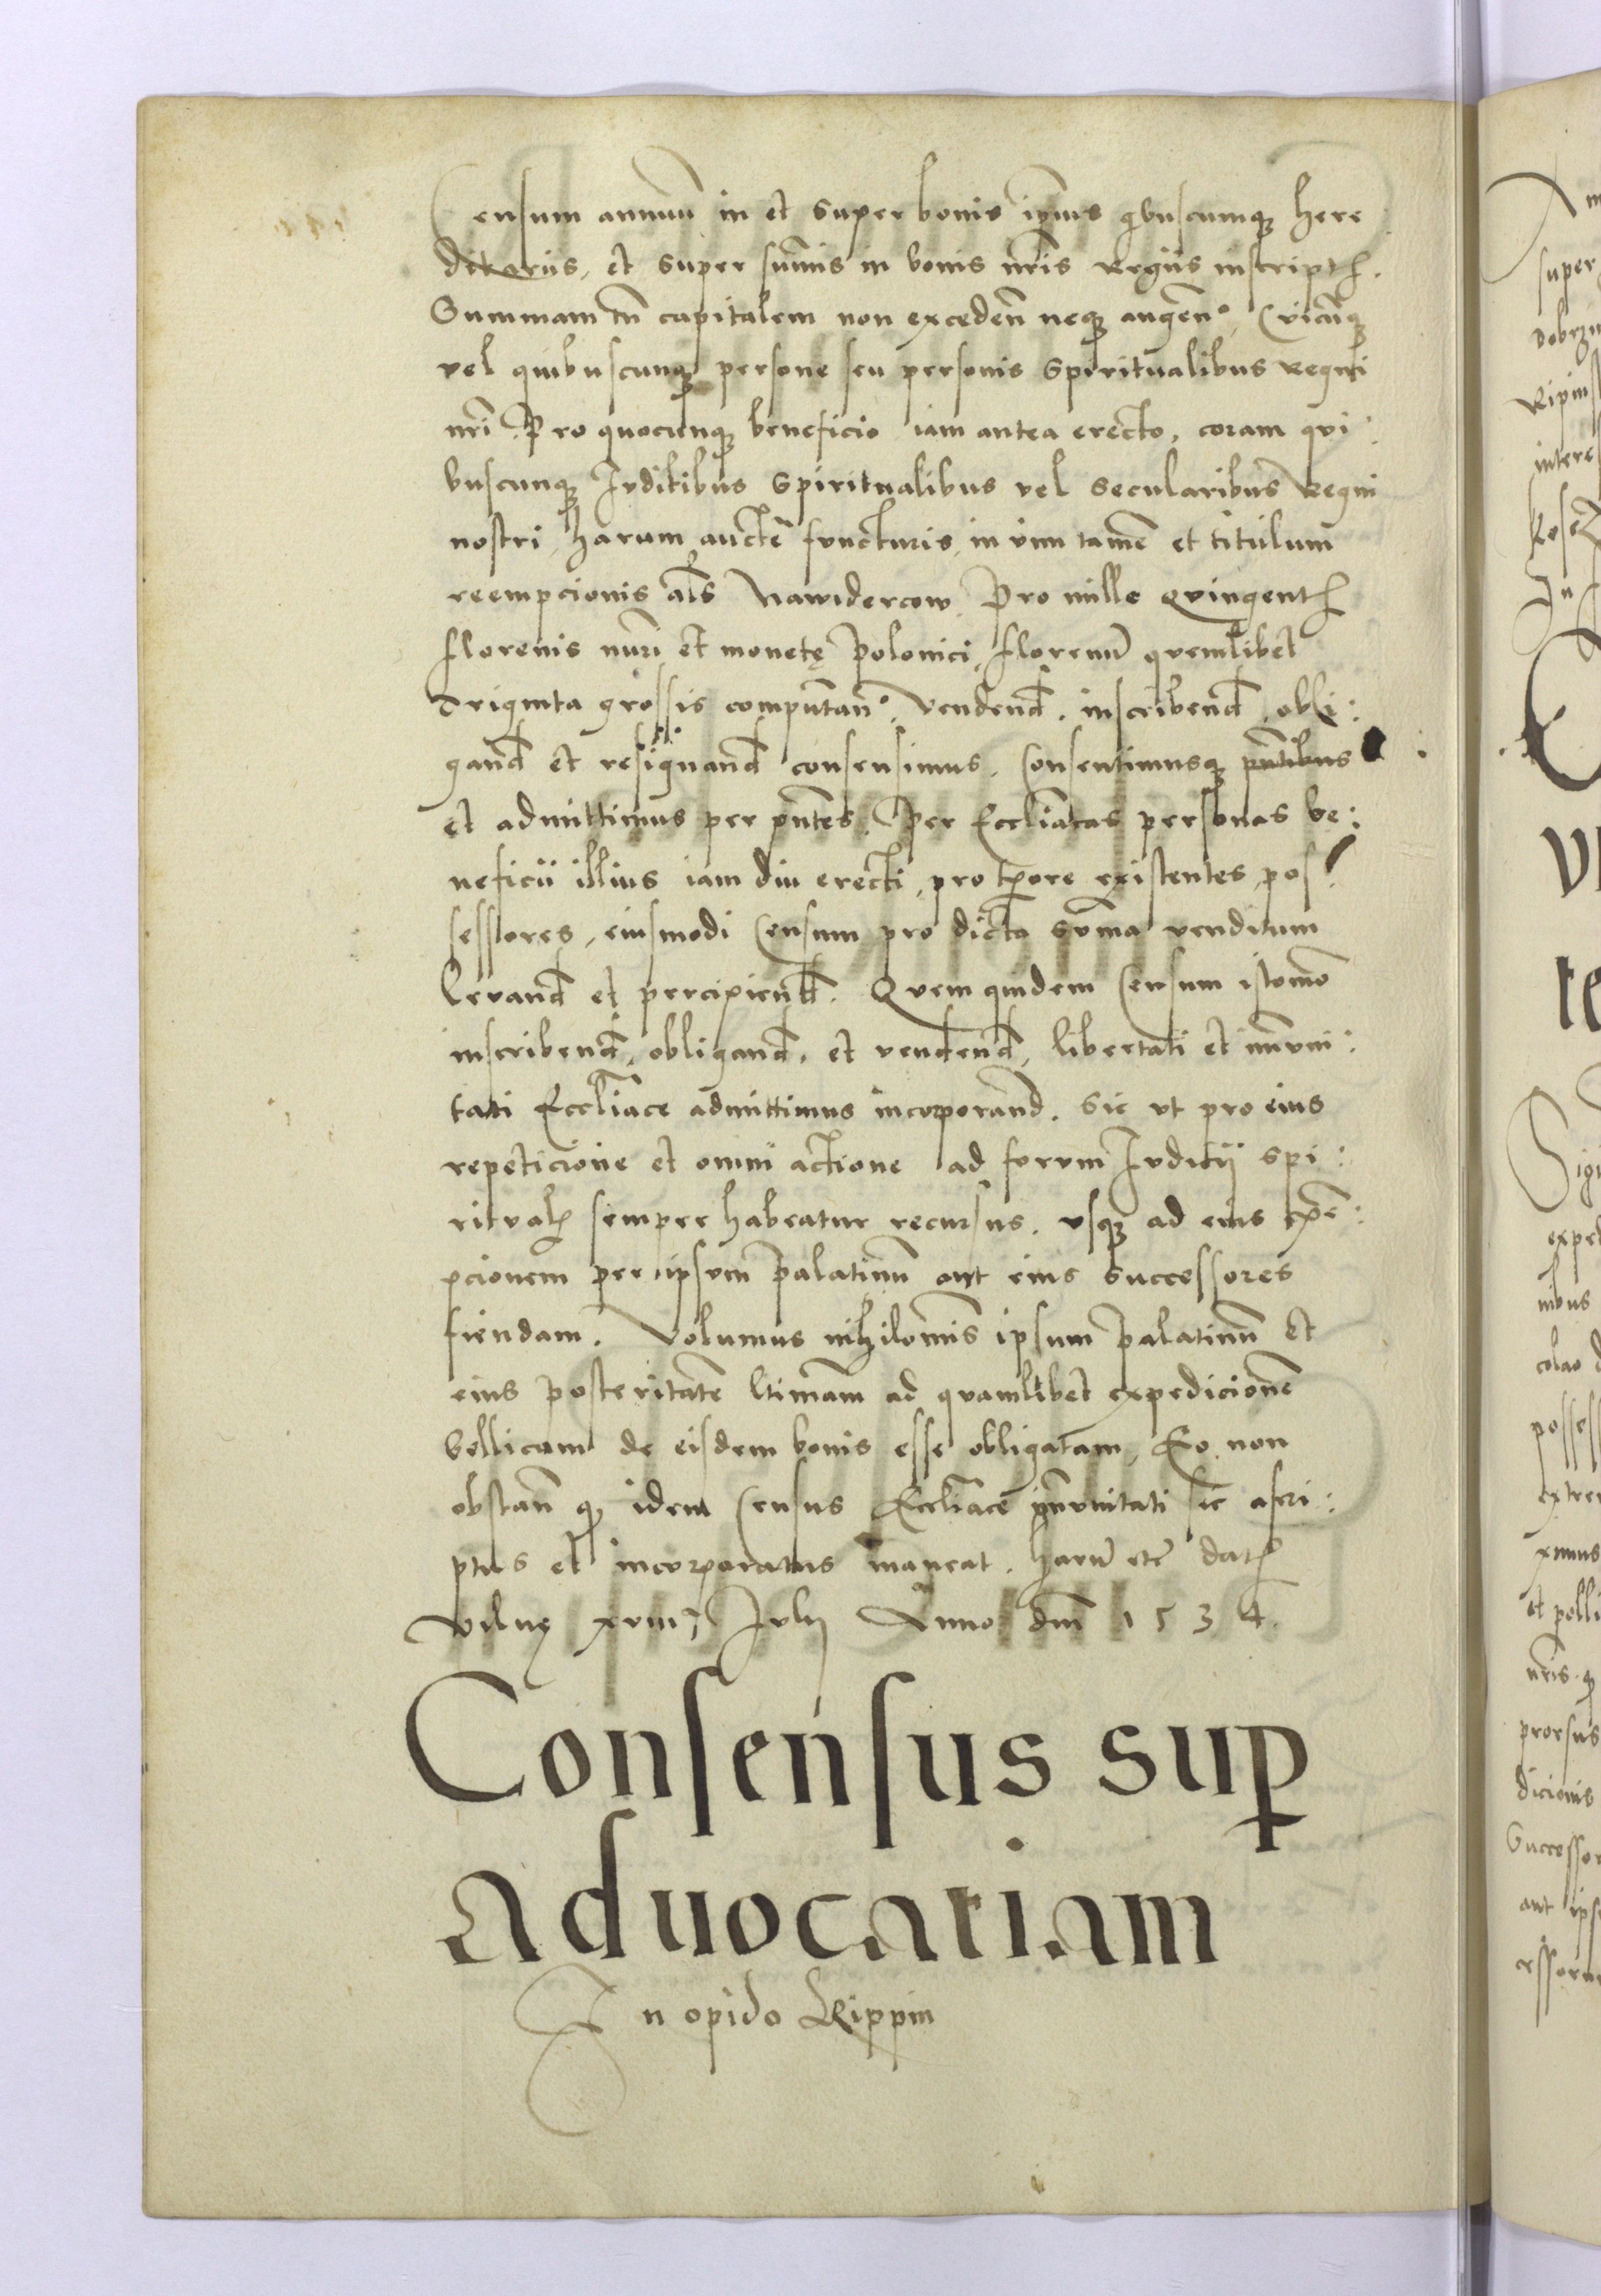 Censum annuū in et super bonis ip̄ius qbuscumq; here
ditariis, et super sum̄is in bonis nr̄is Regiis inscript̄.
Summam tn̄ capitalem non exceden̄ neq; augen̄º, Cuicūq;
vel quibuscunq; persone seu personis Spiritualibus Regni
nr̄i. Pro quocunq; beneficio iam antea erecto, coram qui
buscunq; Iuditibus Spiritualibus vel Secularibus Regni
nostri harum aucte functuris, in vim tamē et titulum
reempcionis als Nawidercow Pro mille Quingent̄
florenis nūri et monetę Polonici, florenū quemlibet
Triginta grossis computan̄º, Vendend̄. inscribend̄, obli:
gand̄ et resignand̄ consensimus. Consentimusq;
et admittimus per pn̄tes. Per Eccl̄iasticas personas be:
neficii illius iam diu erecti, pro tp̄ore existentes pos
sessores, eiusmodi Censum pro dicta Sūma venditum
levand̄ et percipiend̄. Quem quidem Censum istomō
inscribend̄, obligand̄, et vendend̄, libertati et im̄uni:
tati Eccl̄iace admittimus incorporand̄. Sic ut pro eius
repeticione et omni actione ad forum Iuditij Spi:
ritual̄ semper habeatur recursus. usq; ad eius
pcionem per ipsum Palatinū aut eius Successores
fiendam. Volumus nihilomīs ipsum Palatinū et
eius posteritatē ltimam ad quamlibet expedicionē
bellicam de eisdem bonis esse obligatam, Eo non
obstan̄ q; idem Census Eccl̄iace ym̄unitati sic ascri:
ptus et incorporatus maneat. Harū etc̄ dat̄
Vilnę xviii Iulij Anno dm̄ 1534.
Consensus sup
Aduocatiam
In opido Rippin